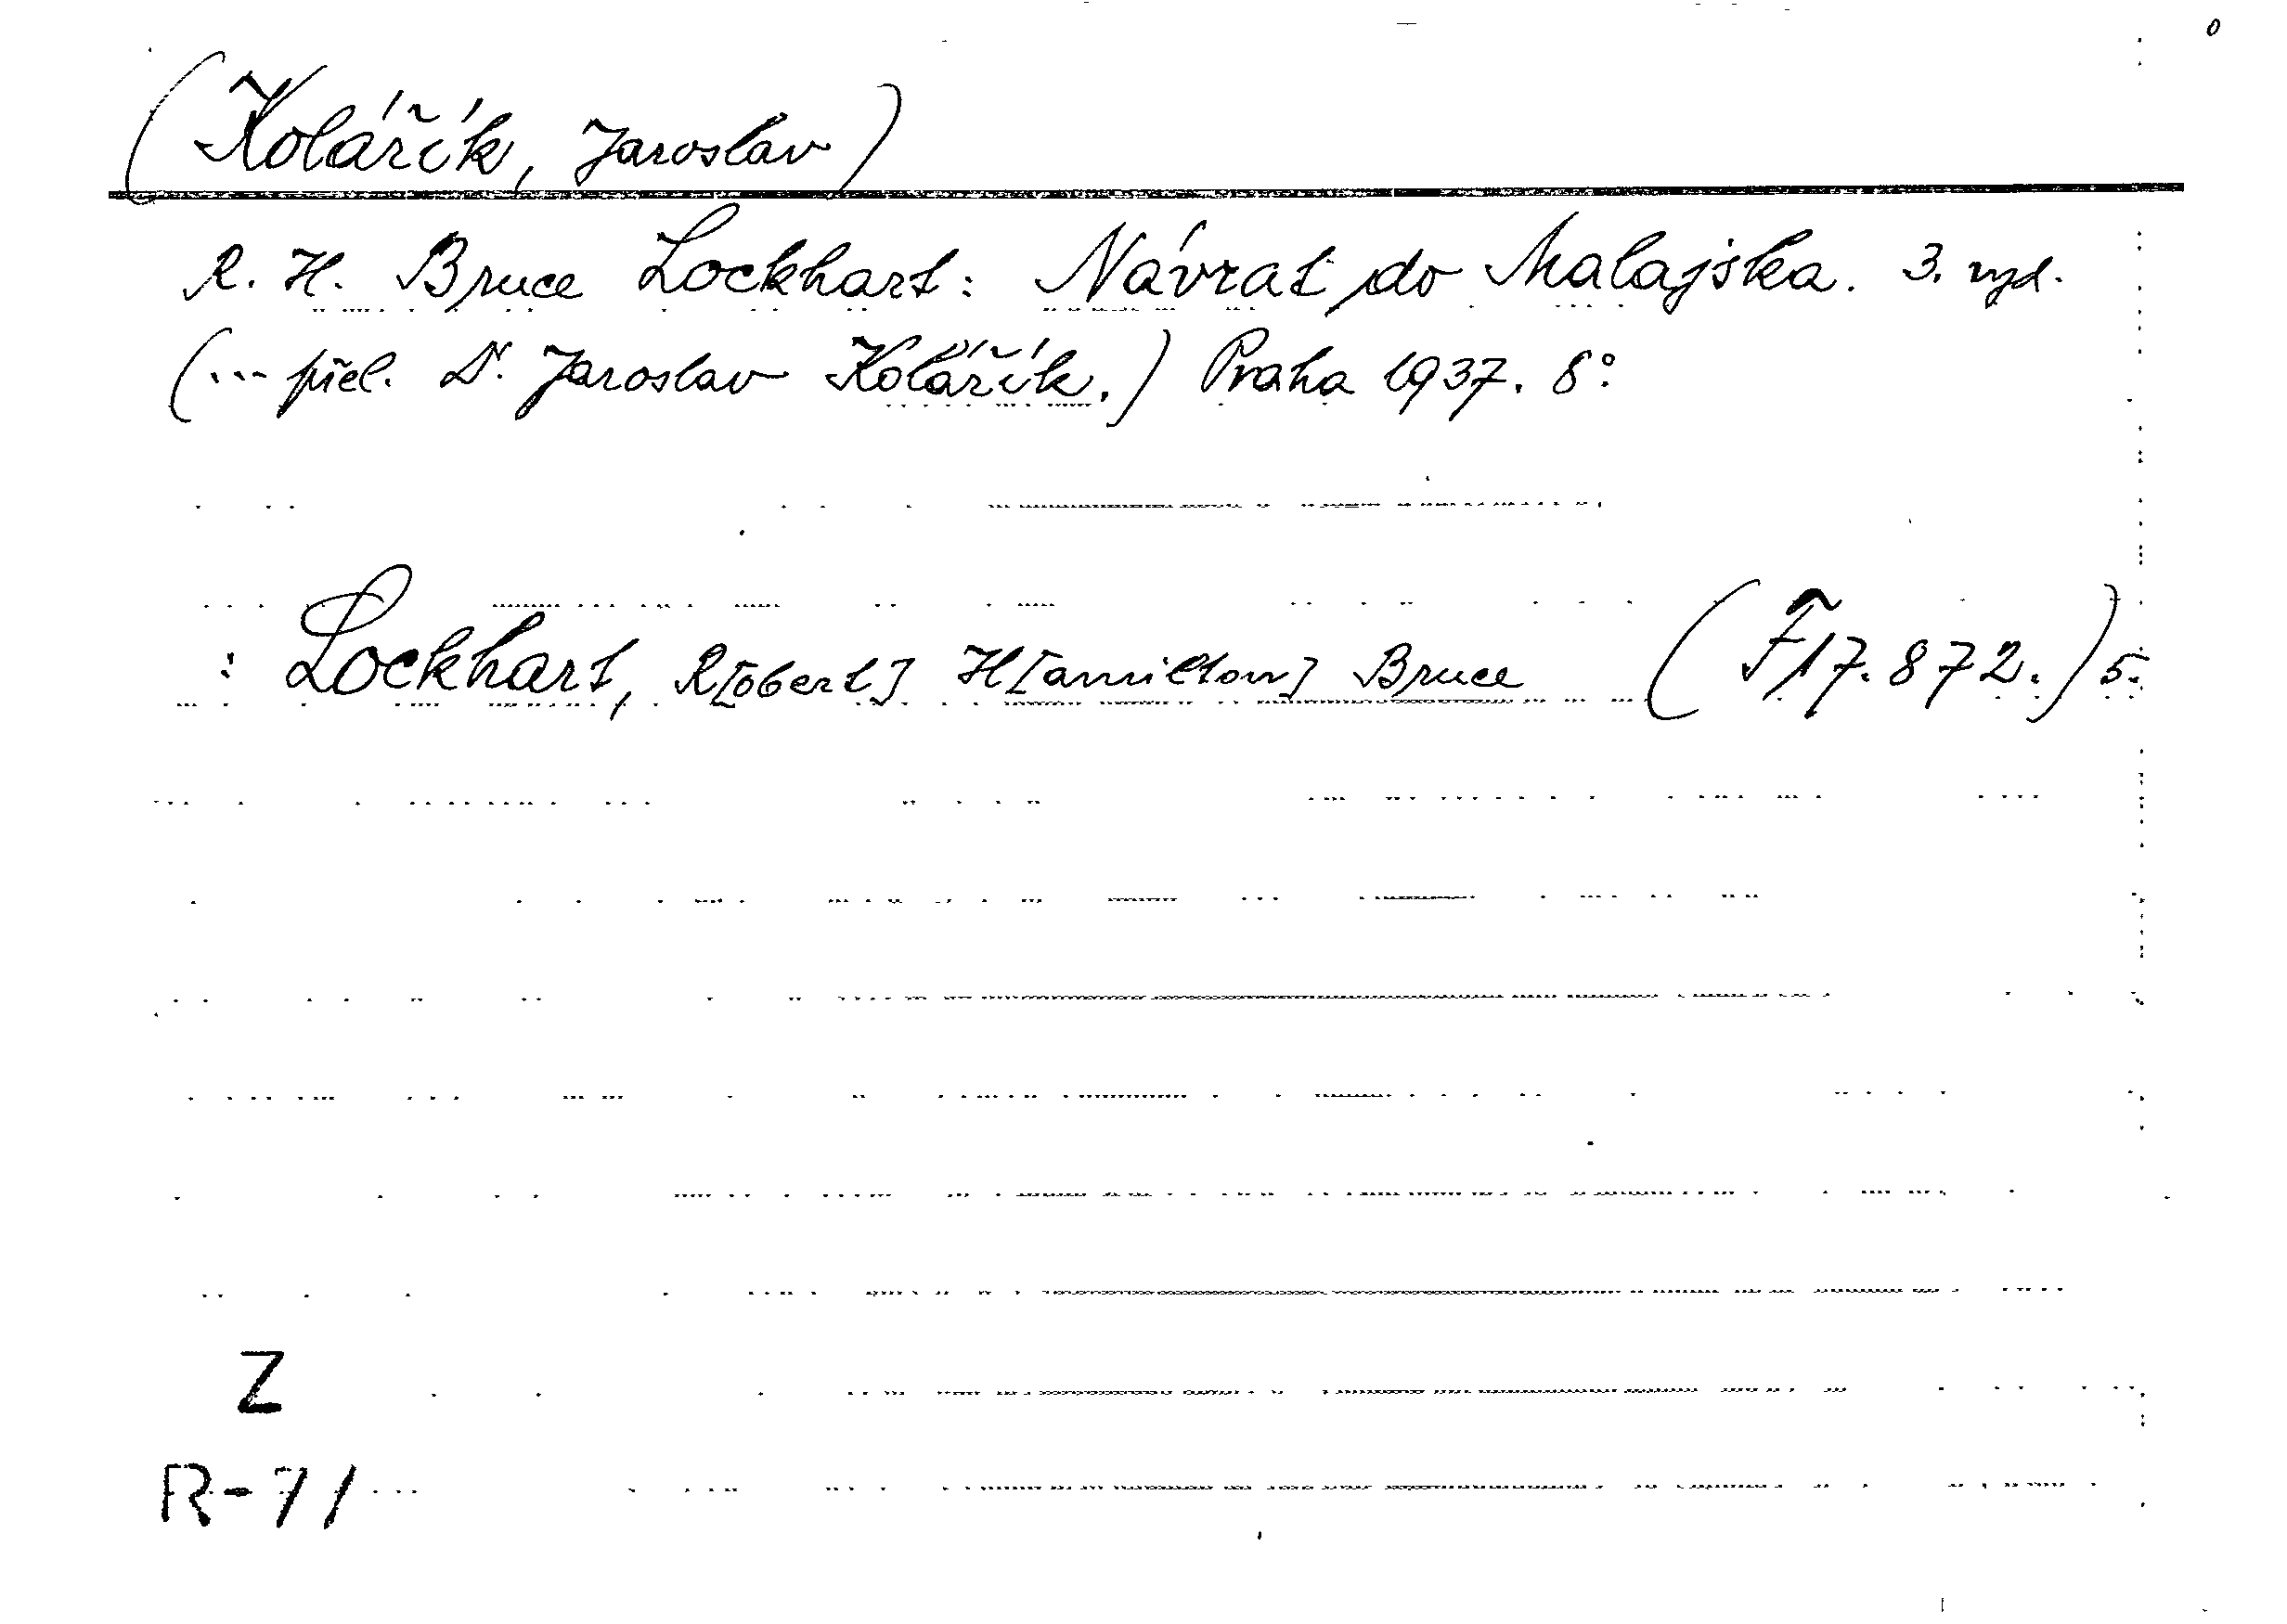 (Kolářík, Jaroslav)
R. H. Bruce Lockhart: Návrat do Malajska. 3. vyd.
(... přel. Dr. Jaroslav Kolářík.) Praha 1937. 8°.
: Lockhart, R[obert] H[amilton] Bruce (F 17.872.) 5.
Z
R-71